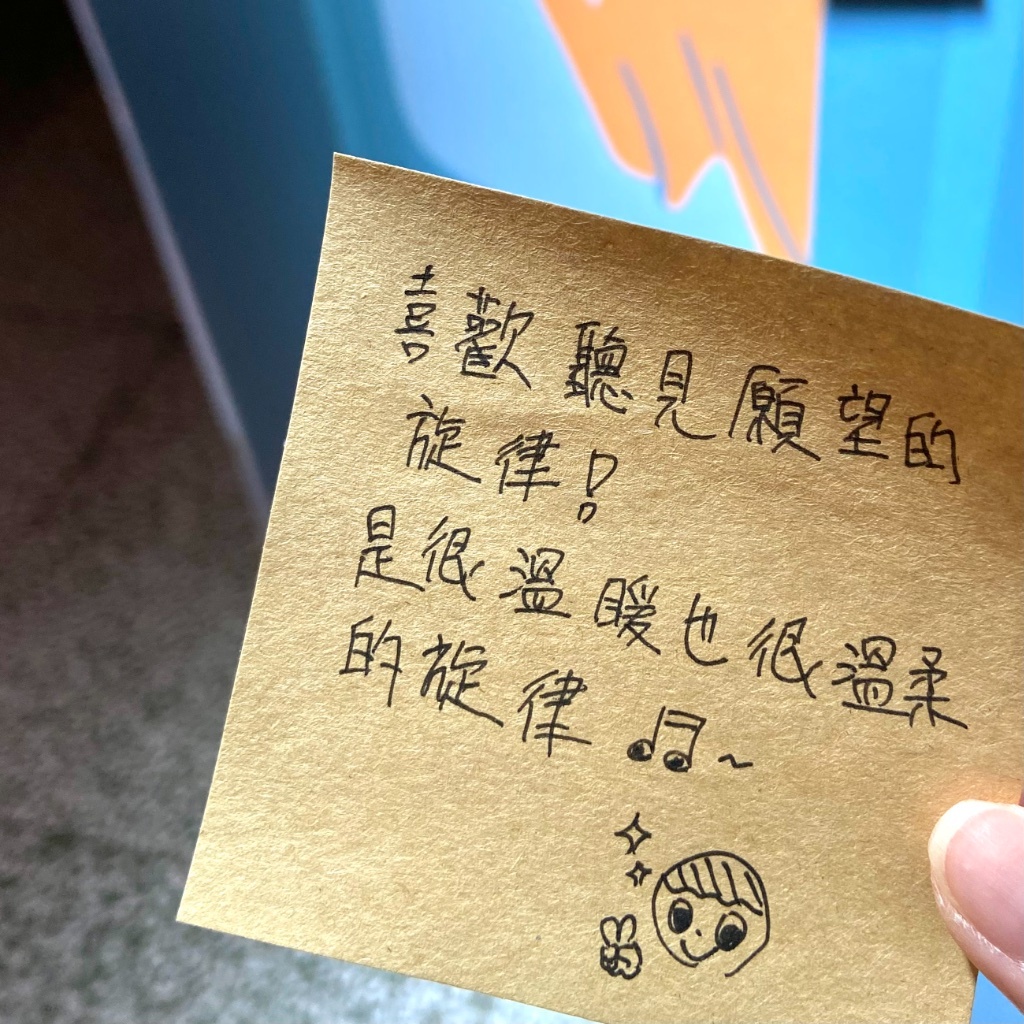 喜歡聽見願望的
旋律!
是很溫暖也很溫柔
的旋律♫~